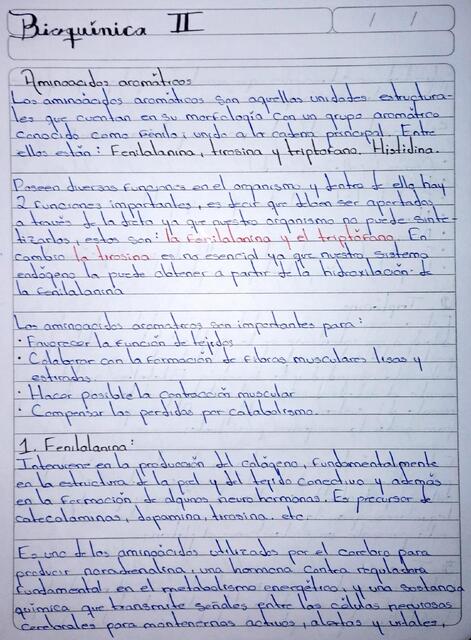 Bioquímica II
/ /
Aminoacidos aromáticos
Los aminoácidos aromáticos son aquellas unidades estructura-
les que cuentan en su morfología con un grupo aromático
conocido como fenilo; unido a la cadena principal. Entre
ellos están: Fenilalanina, tirosina y triptofano. Histidina.
Poseen diversas funciones en el organismo y dentro de ello hay
2 funciones importantes, es decir que deben ser aportados
a través de la dieta ya que nuestro organismo no puede sinte-
tizarlos, estos son: la fenilalanina y el triptófano. En
cambio la tirosina es no esencial ya que nuestro sistema
endógeno la puede obtener a partir de la hidroxilación de
la fenilalanina
Los aminoacidos aromaticos son importantes para:
· Favorecer la función de tejidos
· Colaborar con la formación de fibras musculares lisas y
estriadas
· Hacer posible la contracción muscular
· Compensar las perdidas por catabolismo.
1. Fenilalanina:
Interviene en la producción del colágeno, fundamentalmente
en la estructura de la piel y del tejido conectivo y además
en la formación de algunos neurohormonas. Es precursor de
catecolaminas, dopamina, tirosina. etc.
Es uno de los aminoácidos utilizados por el cerebro para
producir noradrenalina, una hormona contra reguladora
fundamental en el metabolismo energético, y una sustancia
química que transmite señales entre las células nerviosas
cerebrales para mantenernos activos, alertas y vitales,